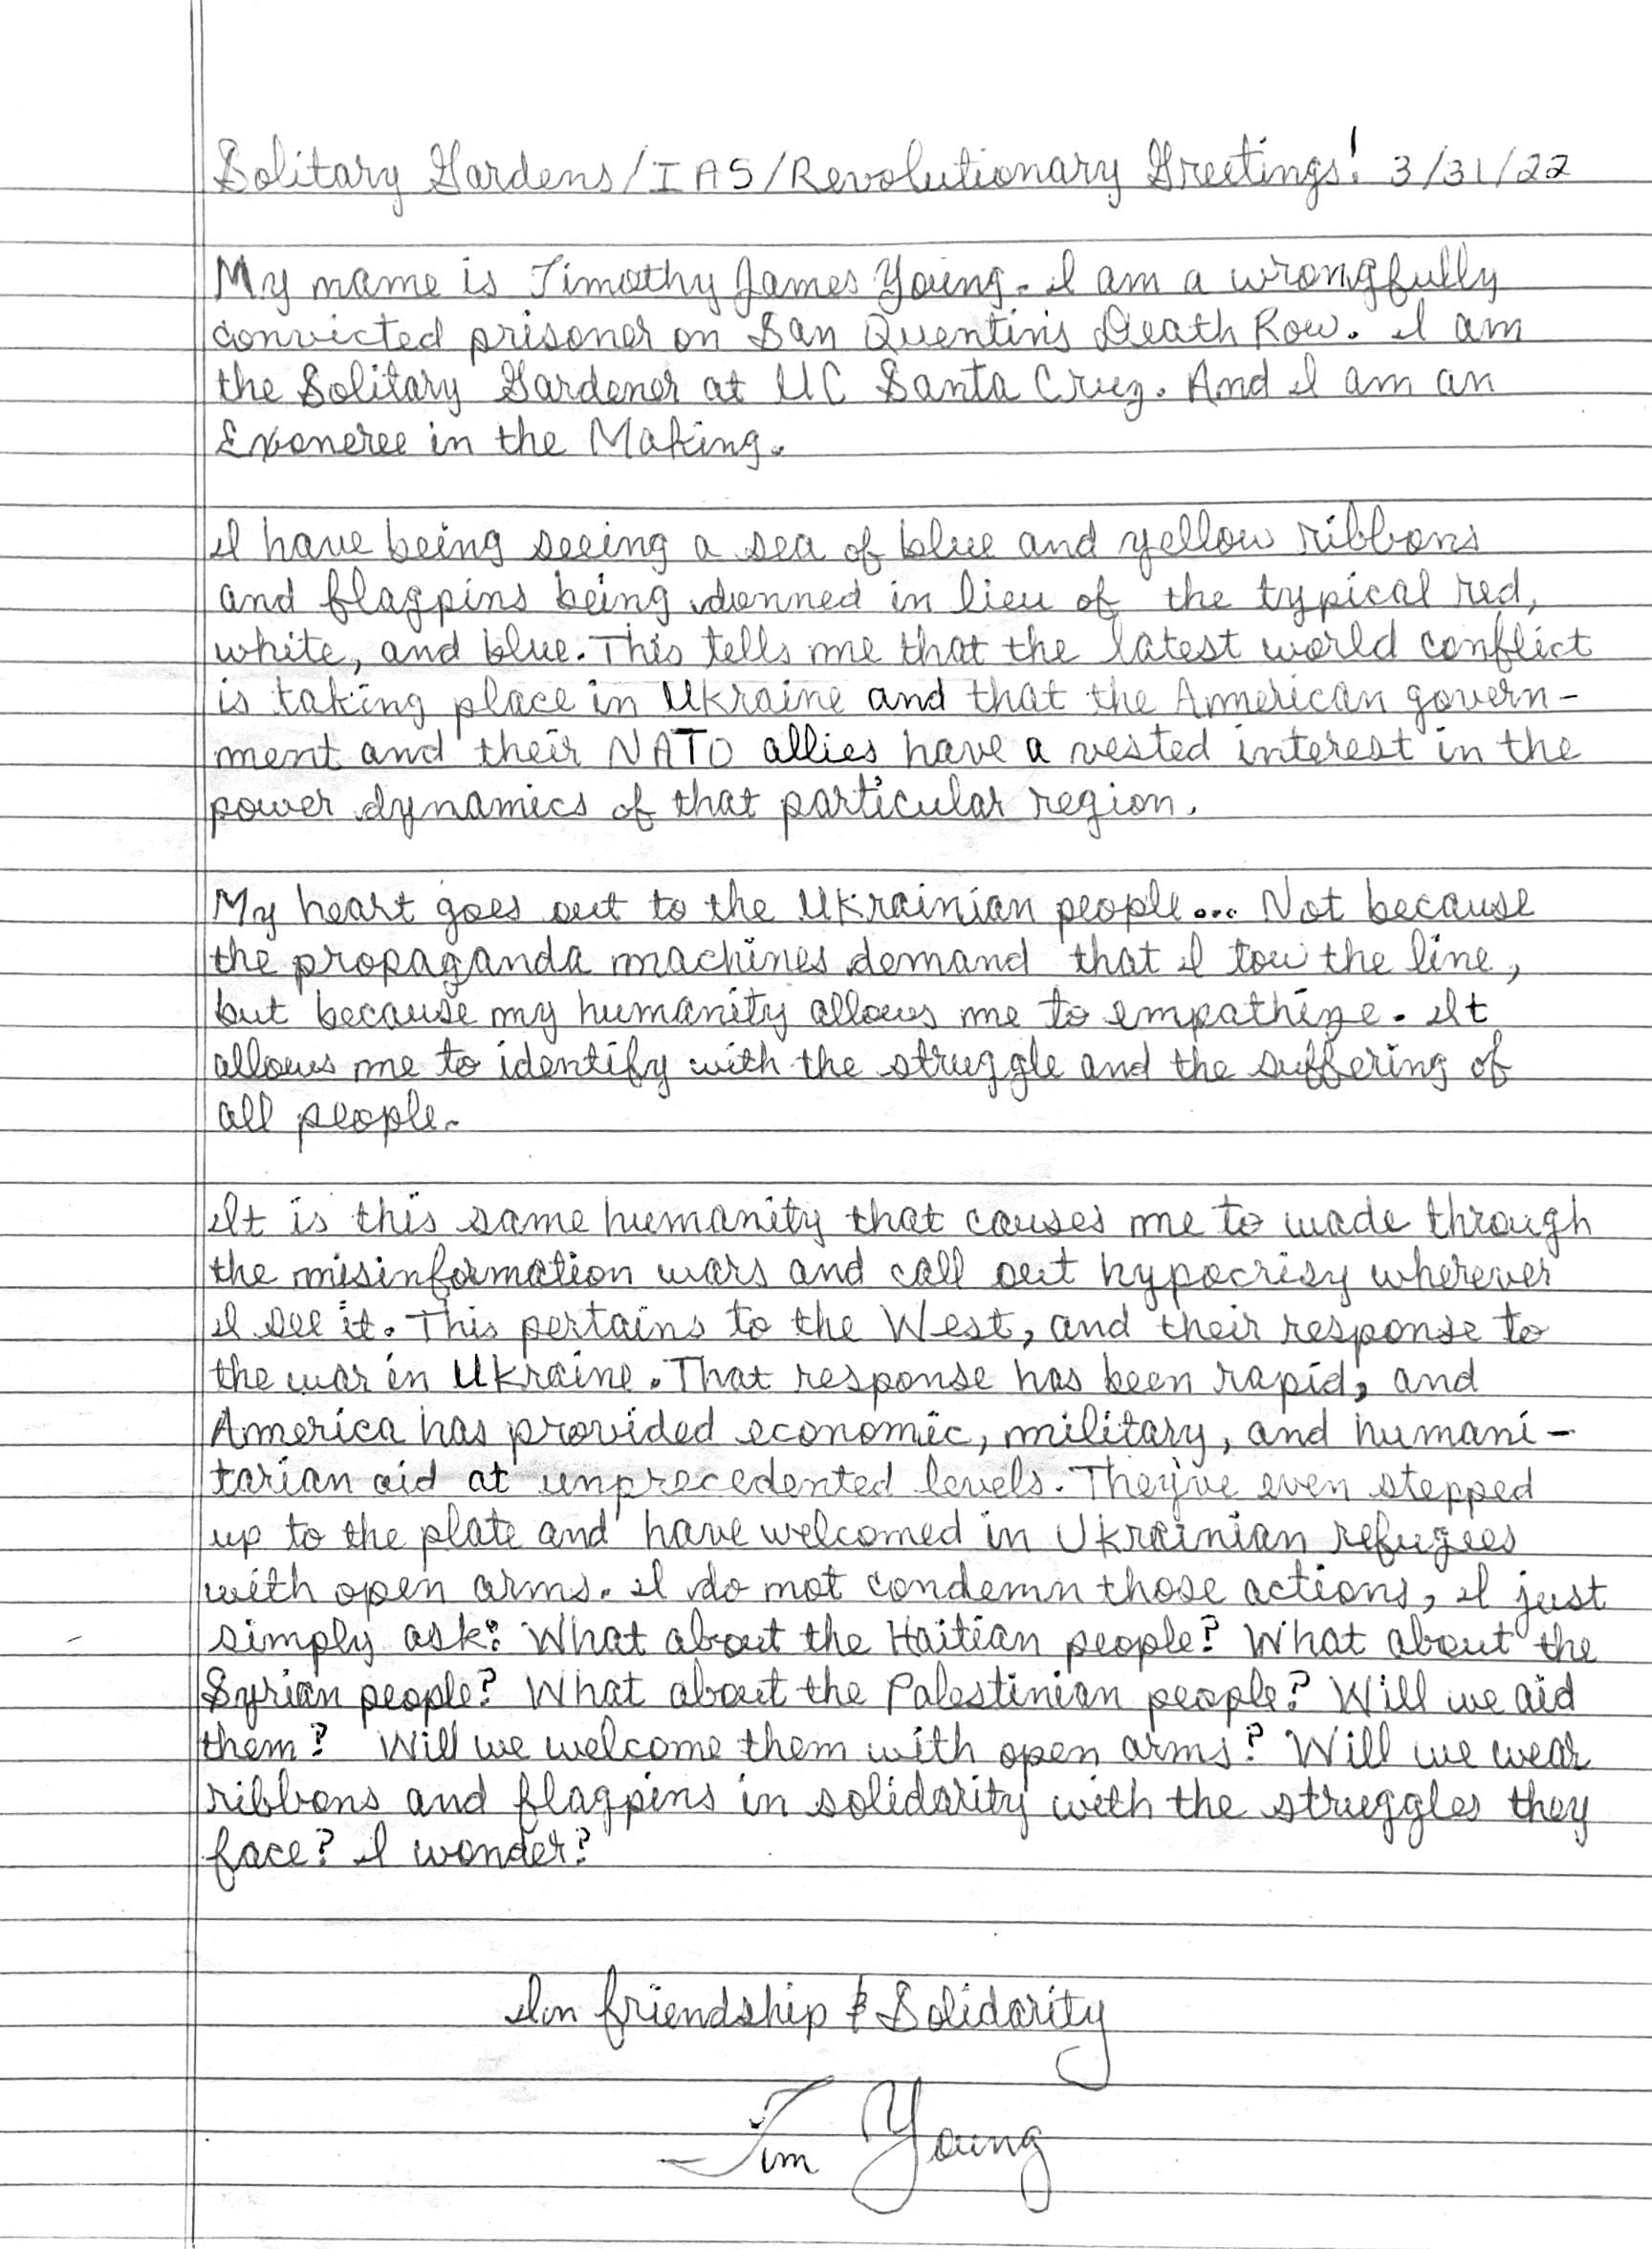 Solitary Gardens/IAS/Revolutionary Greetings! 3/31/22
My name is Timothy James Young. I am a wrongfully
convicted prisoner on San Quentin's Death Row. I am
the Solitary Gardener at UC Santa Cruz. And I am an
Exoneree in the Making.
I have being seeing a sea of blue and yellow ribbons
and flagpins being donned in lieu of the typical red,
white, and blue. This tells me that the latest world conflict
is taking place in Ukraine and that the American govern-
ment and their NATO allies have a vested interest in the
power dynamics of that particular region.
My heart goes out to the Ukrainian people... Not because
the propaganda machines demand that I tow the line,
but because my humanity allows me to empathize. It
allows me to identify with the struggle and the suffering of
all people.
It is this same humanity that causes me to wade through
the misinformation wars and call out hypocrisy wherever
I see it. This pertains to the West, and their response to
the war in Ukraine. That response has been rapid, and
America has provided economic, military, and humani-
tarian aid at unprecedented levels. They've even stepped
up to the plate and have welcomed in Ukrainian refugees
with open arms. I do not condemn those actions, I just
simply ask: What about the Haitian people? What about the
Syrian people? What about the Palestinian people? Will we aid
them? Will we welcome them with open arms? Will we wear
ribbons and flagpins in solidarity with the struggles they
face? I wonder?
In friendship & Solidarity
Tim Young